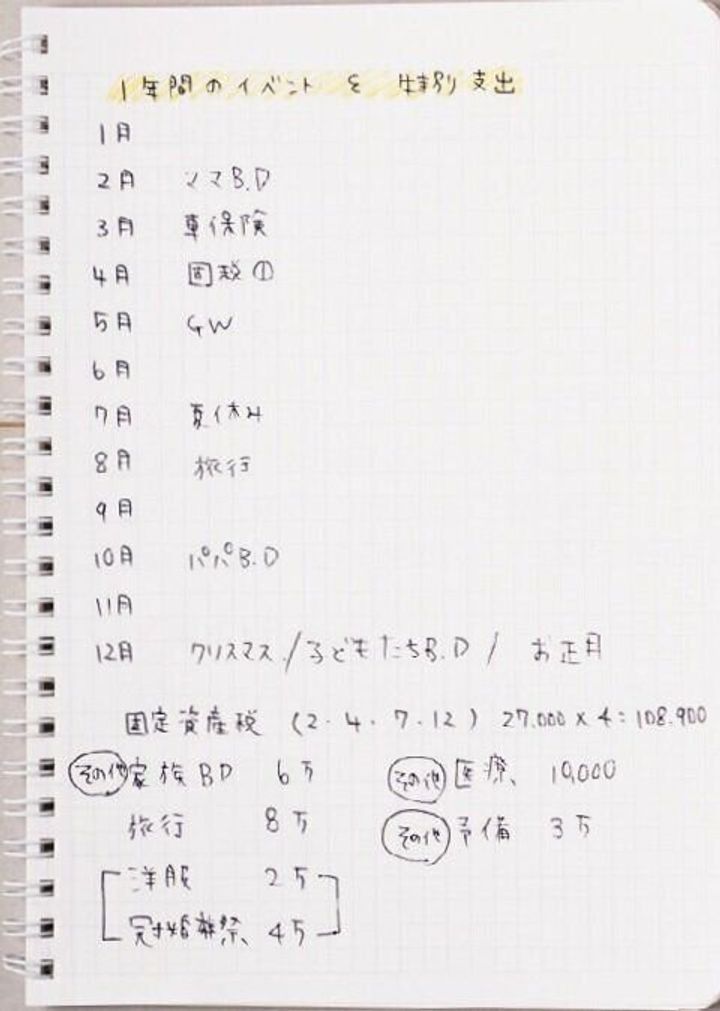 1年間のイベント & 特別支出
1月
2月 ママB.D
3月 車保険
4月 固税①
5月 GW
6月
7月 夏休み
8月 旅行
9月
10月 パパB.D
11月
12月 クリスマス/子どもたちB.D/ お正月
固定資産税 (2・4・7・12) 27.000×4=108.900
その他 家族BD 6万 その他 医療、 10,000
旅行 8万 その他 予備 3万
洋服 2万
冠婚葬祭、 4万